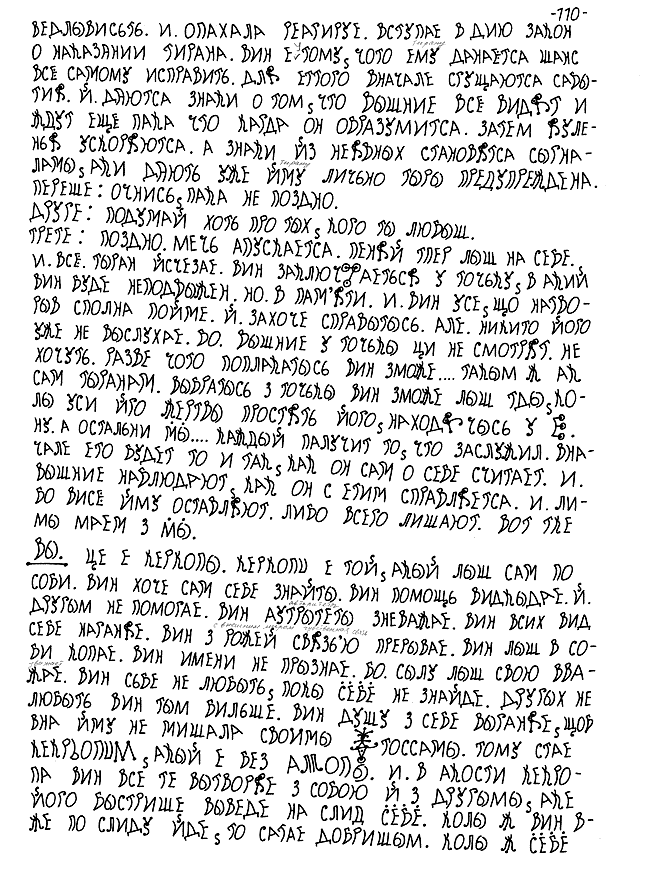 -110-
ВЕДЛЫВИСЬТЬ. И. ОПАХАЛА РЕАГИРУЕ. ВСТУПАЕ В ДИЮ ЗАКОН
О НАКАЗАНИИ ТИРАНА. ВИН Е ТОМУ, ЧОТО ЕМУ ДАНАЕТСА ШАНС
ВСЕ САМОМУ ИСПРАВИТЬ. ДЛЯ ЕТТОГО ВНАЧАЛЕ СГУЩАЮТСА САБЫ-
ТИЯ. Й. ДАЮТСА ЗНАКИ О ТОМ, ЧТО ВЫШНИЕ ВСЁ ВИДЯТ И
ЖДУТ ЕЩЕ ПАКА ЧТО КАГДА ОН ОБРАЗУМИТСА. ЗАТЕМ ЯУЛЕ-
НЬЯ УСКОРЯЮТСА. А ЗНАКИ ИЗ НЕЯВНЫХ СТАНОВЯТСА СЫГНА-
ЛАМЫ, АКИ ДАЮТЬ УЖЕ ЙМУ ЛИЧЬНО ТЫРЫ ПРЕДУПРЕЖДЕНА.
ПЕРЕШЕ: ОЧНИСЬ, ПАКА НЕ ПОЗДНО.
ДРУГЕ: ПОДУМАЙ ХОТЬ ПРО ТЫХ, КОГО ТЫ ЛЮБЫШ.
ТРЕТЕ: ПОЗДНО. МЕЧЬ АПУСКАЕТСА. ПЕНЯЙ ТПЕР ЛЫШ НА СЕБЕ.
И. ВСЕ. ТЫРАН ЙСЧЕЗАЕ. ВИН ЗАКЛЮЧАЕТЬСЯ У ТОЧЬКУ, В АКИЙ
ВИН БУДЕ НЕПОДВЫЖЕН. НО. В ПАМ'ЯТИ. И. ВИН УСЕ, ЩО НАТВО-
РЫВ СПОЛНА ПОЙМЕ. Й. ЗАХОЧЕ СПРАВЫТЫСЬ. АЛЕ. НИКИТО ЙОГО
УЖЕ НЕ ВЫСЛУХАЕ. БО. ВЫШНИЕ У ТОЧЬКЫ ЦИ НЕ СМОТРЯТ. НЕ
ХОЧУТЬ. РАЗВЕ ЧОТО ПОПЛАКАТЫСЬ ВИН ЗМОЖЕ.... ТАКЫМ Ж АК
САМ ТЫРАНАМ. ВЫБРАТЫСЬ З ТОЧЬКЫ ВИН ЗМОЖЕ ЛЫШ ТДЫ, КО-
ЛЫ УСИ ЙГО ЖЕРТВЫ ПРОСТЯТЬ ЙОГО, НАХОДЯЧЫСЬ У Ё.
НУ. А ОСТАЛЬНИ МЫ.... КАЖДЫЙ ПАЛУЧИТ ТО, ЧТО ЗАСЛУЖИЛ. ВНА-
ЧАЛЕ ЕТО БУДЕТ ТО И ТАК, КАК ОН САМ О СЕБЕ СЧИТАЕТ. И.
ВЫШНИЕ НАБЛЮДАЮТ, КАК ОН С ЕТИМ СПРАВЛЯЕТСА. И. ЛИ-
БО ВИСЕ ЙМУ ОСТАВЛЯЮТ. ЛИБО ВСЕГО ЛИШАЮТ. ВОТ ТКЕ
МЫ МАЕМ З МЫ.
ВЫ. ЦЕ Е КЕРКОПЫ. КЕРКОПИ Е ТОЙ, АКЫЙ ЛЫШ САМ ПО
СОБИ. ВИН ХОЧЕ САМ СЕБЕ ЗНАЙТЫ. ВИН ПОМОЩЬ ВИДКЫДАЕ. Й.
ДРУГЫМ НЕ ПОМОГАЕ. ВИН АУТРЫТЕТЫ ЗНЕВАЖАЕ. ВИН ВСИХ ВИД
СЕБЕ НАГАНЯЕ. ВИН З РОЖЕЙ СВЯЗЬЮ ПРЕРЫВАЕ. ВИН ЛЫШ В СО-
БИ КОПАЕ. ВИН ИМЕНИ НЕ ПРОЗНАЕ. БО. СЫЛУ ЛЫШ СВОЮ ВВА-
ЖАЕ. ВИН СЬБЕ НЕ ЛЮБЫТЬ, ПОКЫ СЁБЁ НЕ ЗНАЙДЕ. ДРУГЫХ НЕ
ЛЮБЫТЬ ВИН ТЫМ БИЛЬШЕ. ВИН ДУШУ З СЕБЕ ВЫГАНЯЕ, ЩОБ
ВНА ЙМУ НЕ МИШАЛА СВОИМЫ ТОССАМЫ. ТОМУ СТАЕ
КЕКРЬОПИМ, АКЫЙ Е БЕЗ. И. В АКОСТИ КЕКРО-
ПА ВИН ВСЁ ТЕ ВЫТВОРЯЕ З СОБОЮ Й З ДРУГЫМЫ, АКЕ
ЙОГО БЫСТРИШЕ ВЫВЕДЕ НА СЛИД СЁБЁ. КОЛЫ Ж ВИН В-
ЖЕ ПО СЛИДУ ЙДЕ, ТО САТАЕ ДОБРИШЫМ. КОЛЫ Ж СЁБЁ